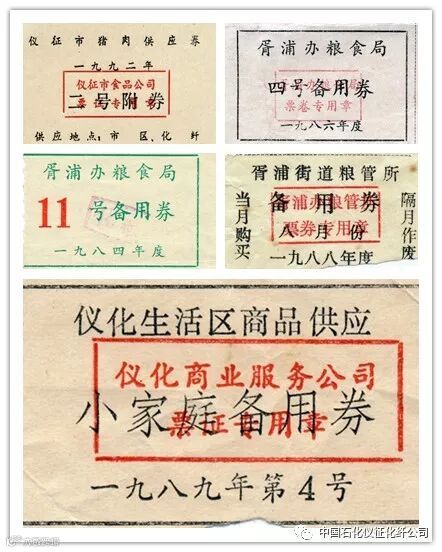 仪征市猪肉供应券
一九九二年
仪征市食品公司
票证专用章
二号附券
供应地点:市区、化纤
胥浦办粮食局
四号备用券
票卷专用章
一九八六年度
胥浦办粮食局
11号备用券
一九八四年度
胥浦街道粮管所
备用券
胥浦办粮管所
票券专用章
八月份
一九八八年度
当月购买
隔月作废
仪化生活区商品供应
仪化商业服务公司
票证专用章
小家庭备用券
一九八九年第4号
中国石化仪征化纤公司